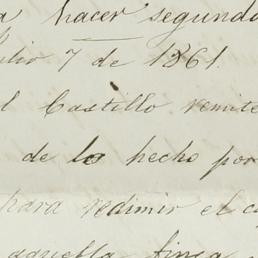 a hacer segundo
Julio 7 de 1861.
l Castillo remite
de lo hecho por
para redimir el c
aquella finca